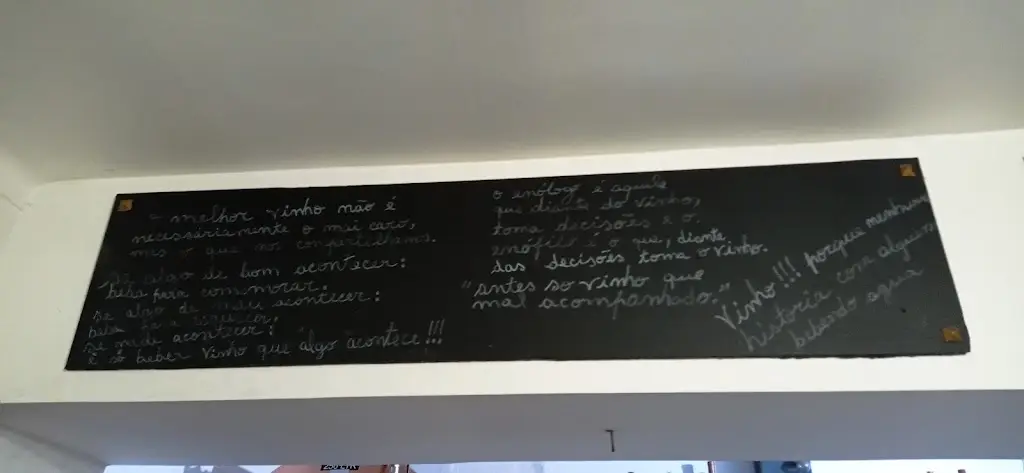 " melhor vinho não é
necessáriamente o mai caro,
mes o que nos compartilhamos.
se algo de bom acontecer:
beba para commorar.
se algo de mau acontecer:
beba para esquecer.
se nada acontecer:
é só beber vinho que algo acontece!!!
o enólogo é aquele
que diante do vinho,
toma decisões e o.
enófilo é o que, diante
das decisões toma o vinho.
"antes so vinho que
mal acompanhado."
Vinho!!! porque nenhuma
historia com alguem
bebendo agua